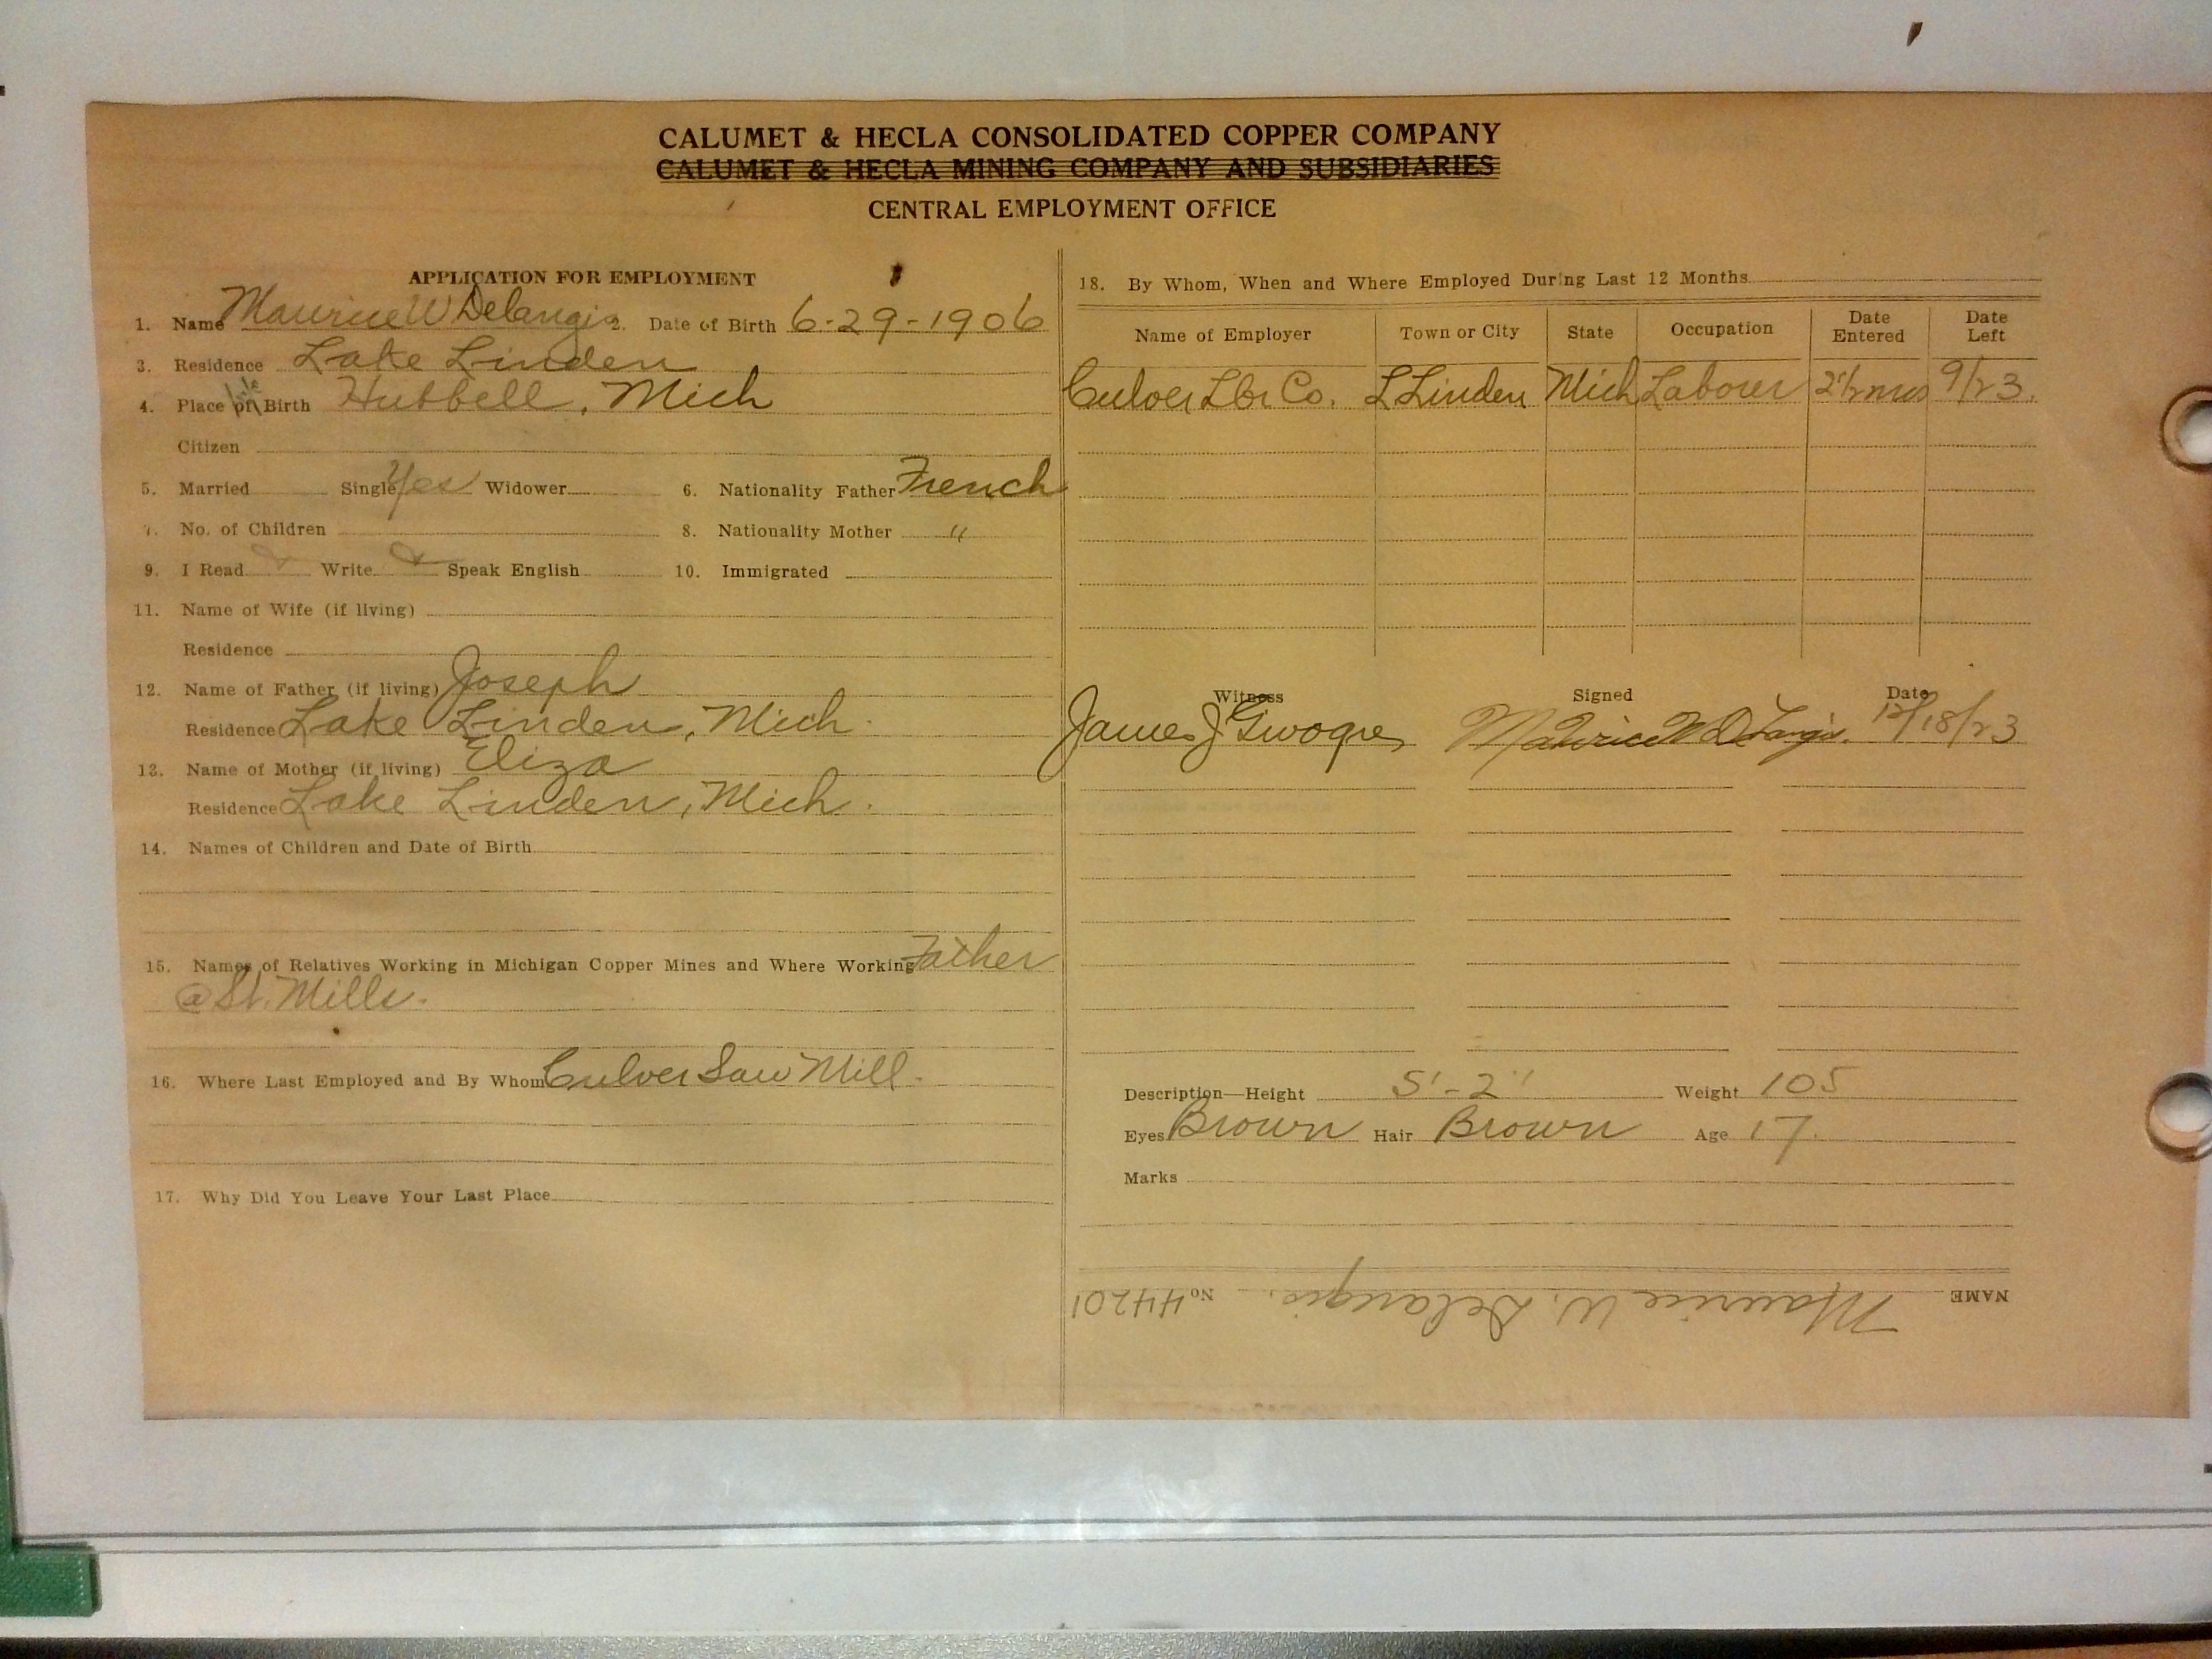 CALUMET & HECLA CONSOLIDATED COPPER COMPANY
CALUMET & HECLA MINING COMPANY AND SUBSIDIARIES
CENTRAL EMPLOYMENT OFFICE
APPLICATION FOR EMPLOYMENT
1. Name Maurice W Delangis 2. Date of Birth 6-29-1906
3. Residence Lake Linden
4. Place of Birth Hubbell, Mich
Citizen
5. Married Single Yes Widower 6. Nationality Father French
7. No. of Children 8. Nationality Mother "
9. I Read Write Speak English 10. Immigrated
11. Name of Wife (if living)
Residence
12. Name of Father (if living) Joseph
Residence Lake Linden, Mich.
13. Name of Mother (if living) Eliza
Residence Lake Linden, Mich.
14. Names of Children and Date of Birth
15. Names of Relatives Working in Michigan Copper Mines and Where Working Father
@ St. Mills.
16. Where Last Employed and By Whom Culver Saw Mill.
17. Why Did You Leave Your Last Place
18. By Whom, When and Where Employed During Last 12 Months
Name of Employer Town or City State Occupation Date Entered Date Left
Culver Lbr Co. L Linden Mich Laborer 2 1/2 mos 9/23.
Witness Signed Date
James J Maurice W DeLangis. 12/18/23
Description—Height 5'-2" Weight 105
Eyes Brown Hair Brown Age 17.
Marks
NAME Maurice W. Delangis. No 44201